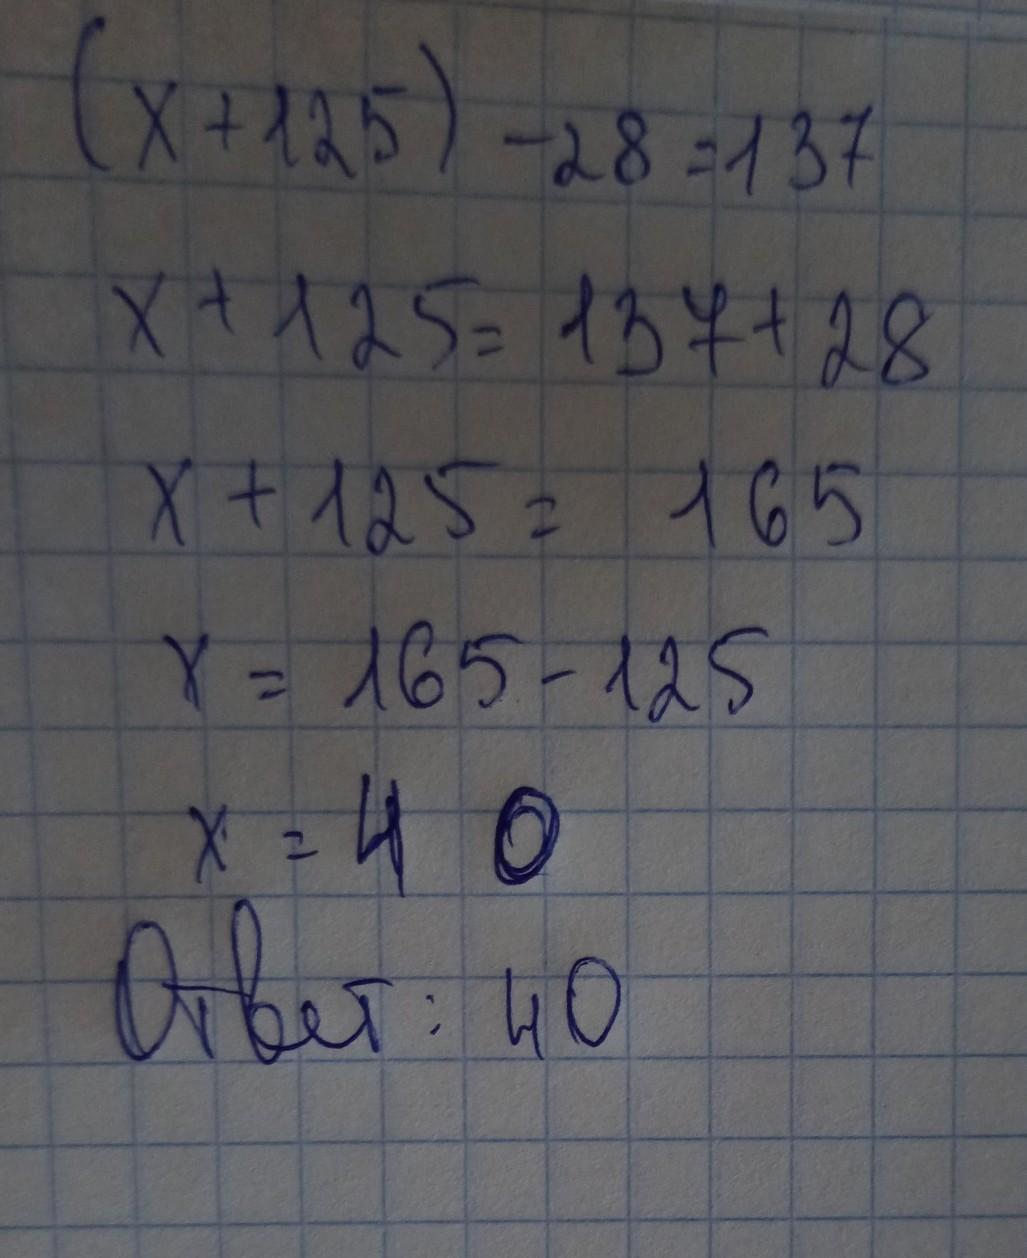 (x+125) -28=137
x+125=137+28
x+125= 165
x = 165-125
x = 40
Ответ: 40